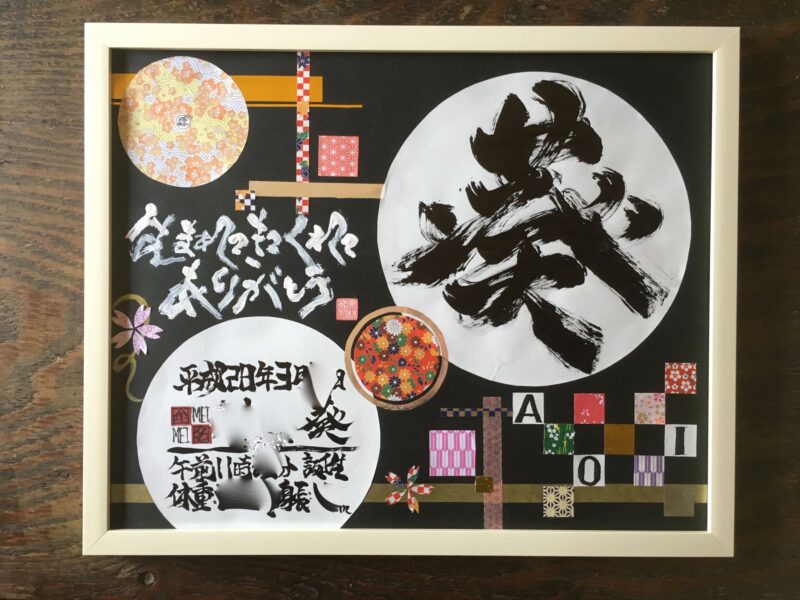 葵
生まれてきてくれて
ありがとう
平成28年3月
MEI
MEI
葵
午前11時
誕生
体重
身長
A
O I